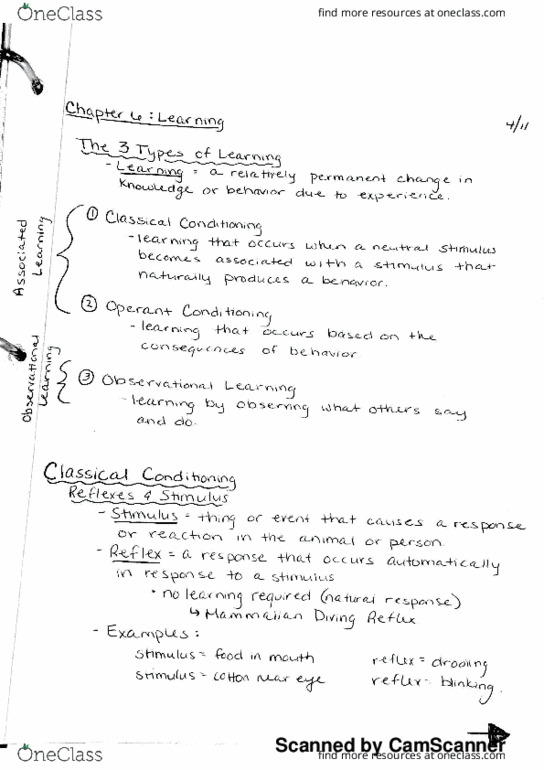 OneClass
find more resources at oneclass.com
Chapter 6: Learning
4/11
The 3 Types of Learning
- Learning = a relatively permanent change in
knowledge or behavior due to experience.
Associated
Learning
① Classical Conditioning
- learning that occurs when a neutral stimulus
becomes associated with a stimulus that
naturally produces a behavior.
② Operant Conditioning
- learning that occurs based on the
consequences of behavior
Observational
Learning
③ Observational Learning
- learning by observing what others say
and do.
Classical Conditioning
Reflexes & Stimulus
- Stimulus = thing or event that causes a response
or reaction in the animal or person.
- Reflex = a response that occurs automatically
in response to a stimulus
• no learning required (natural response)
↳ Mammalian Diving Reflex
- Examples:
stimulus = food in mouth reflex = drooling
stimulus = cotton near eye reflex = blinking.
Scanned by CamScanner
OneClass
find more resources at oneclass.com